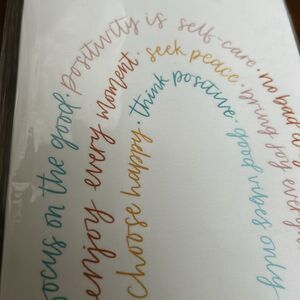 focus on the good · positivity is self-care · no bad
enjoy every moment · seek peace · bring joy
choose happy · think positive · good vibes only